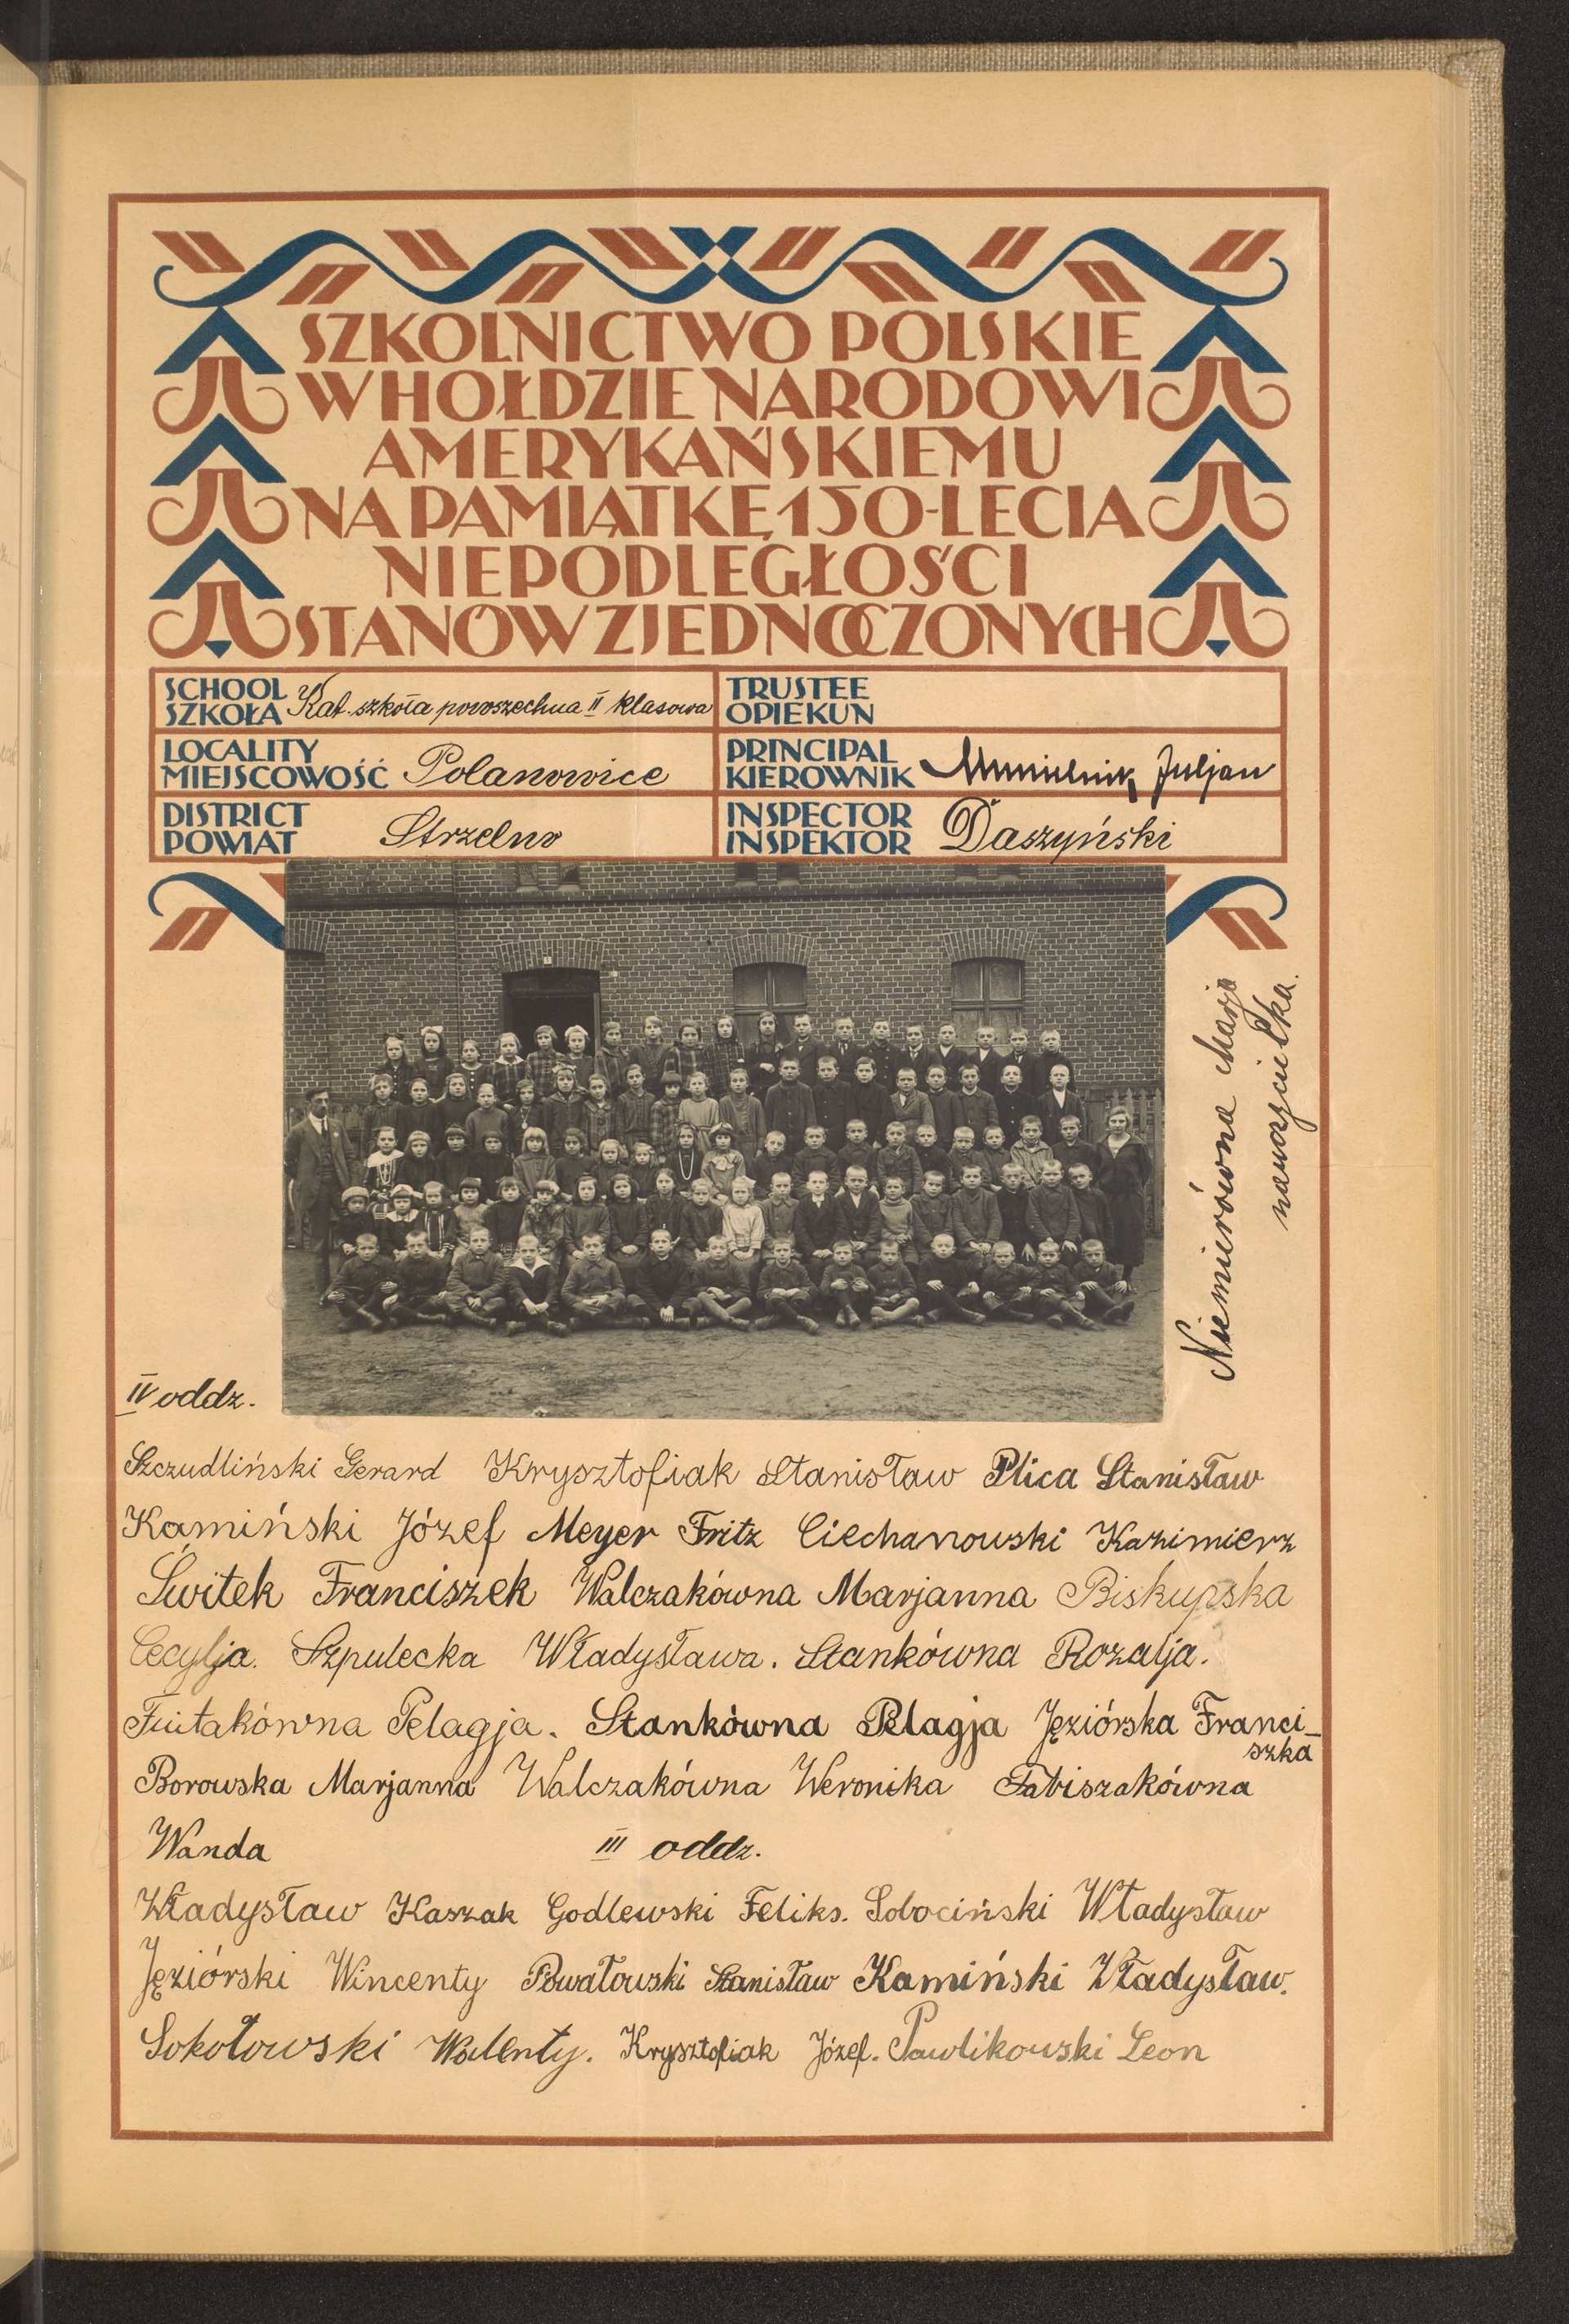 SZKOLNICTWO POLSKIE
W HOŁDZIE NARODOWI
AMERYKAŃSKIEMU
NA PAMIĄTKĘ 150-LECIA
NIEPODLEGŁOŚCI
STANÓW ZJEDNOCZONYCH
SCHOOL
SZKOŁA Kat. szkoła powszechna II klasowa
TRUSTEE
OPIEKUN
LOCALITY
MIEJSCOWOŚĆ Polanowice
PRINCIPAL
KIEROWNIK Juljan
DISTRICT
POWIAT Strzelno
INSPECTOR
INSPEKTOR Daszyński
Niemierówna Marja
nauczycielka.
IV oddz.
Szczudliński Gerard Krysztofiak Stanisław Plica Stanisław
Kamiński Józef Meyer Fritz Ciechanowski Kazimierz
Świtek Franciszek Walczakówna Marjanna Biskupska
Cecylja. Szpulecka Władysława. Stankówna Rozalja.
Pelagja. Stankówna Pelagja Jęziórska Franci-
szka
Borowska Marjanna Walczakówna Weronika Fabiszakówna
Wanda
III oddz.
Władysław Kaszak Godlewski Feliks. Sobociński Władysław
Jęziórski Wincenty Powałowski Stanisław Kamiński Władysław.
Sokołowski Walenty. Krysztofiak Józef. Pawlikowski Leon